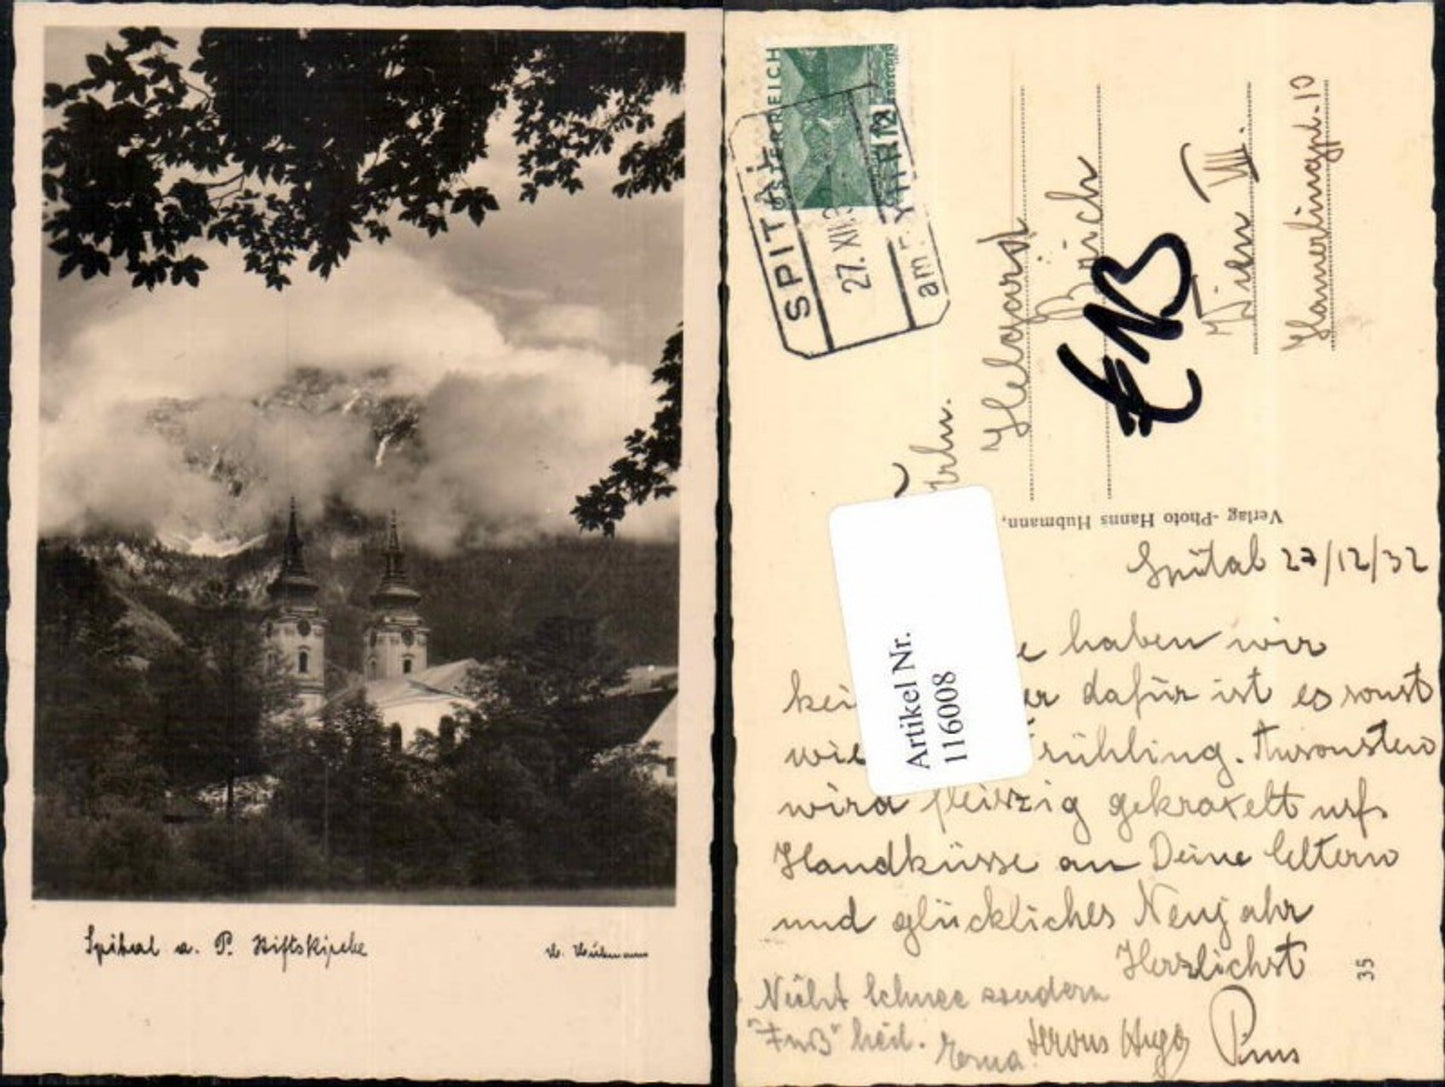 Spital a. P. Stiftskirche
H. Hubmann
ÖSTERREICH
12
SPITAL
27. XII. 3
am
Frln.
Helgard
Wien VIII.
Hamerlingpl. 10
Verlag -Photo Hanns Hubmann,
Artikel Nr.
116008
Spital 27/12/32
e haben wir
kei er dafür ist es sonst
wie rühling. Ansonsten
wird fleiszig gekraxelt usf.
Handküsse an Deine Eltern
und glückliches Neujahr
Herzlichst
35
Nicht Schnee sondern
"Fuß" heil. Erna Servus Hugo